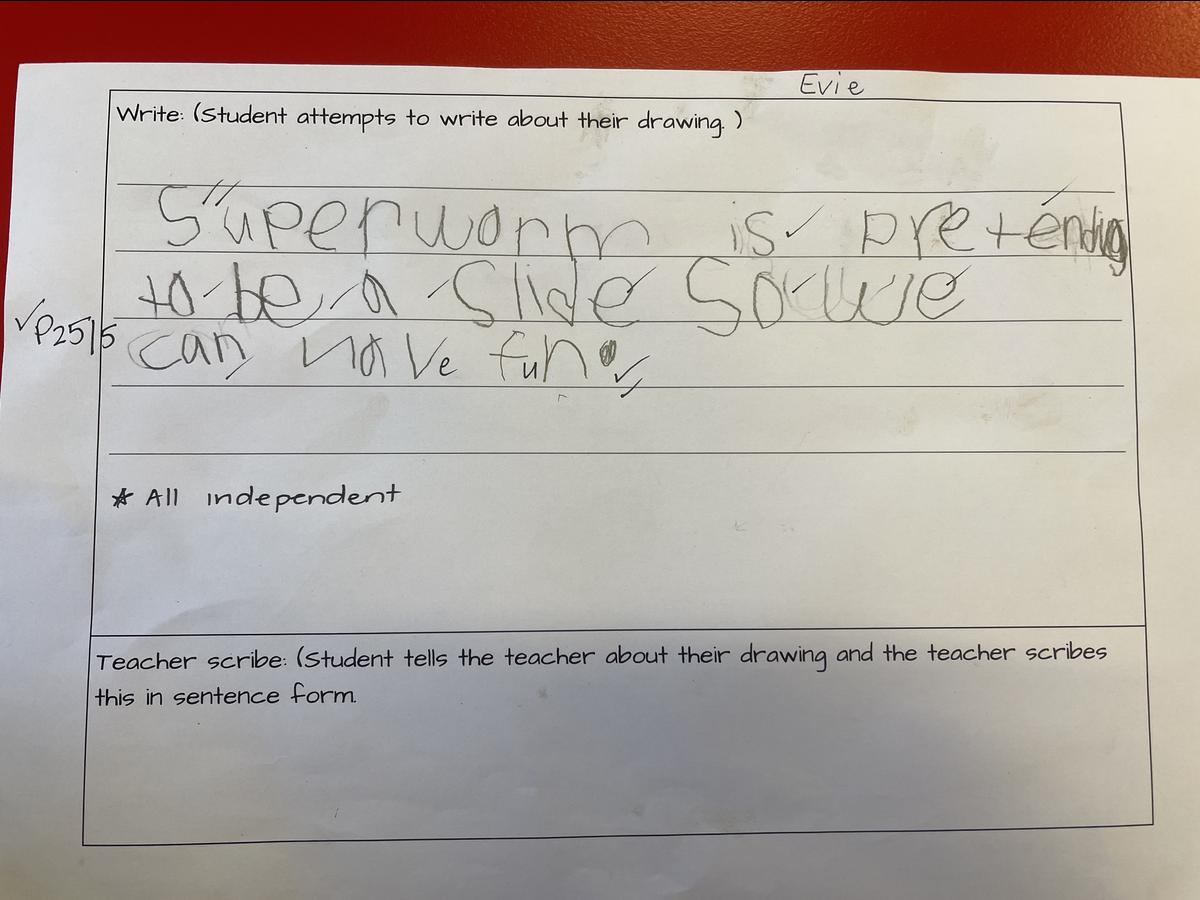 Evie
Write: (Student attempts to write about their drawing. )
Superworm is pretendig
to be a Slide So we
✓P25/5
can have fun.
* All independent
Teacher scribe: (Student tells the teacher about their drawing and the teacher scribes
this in sentence form.